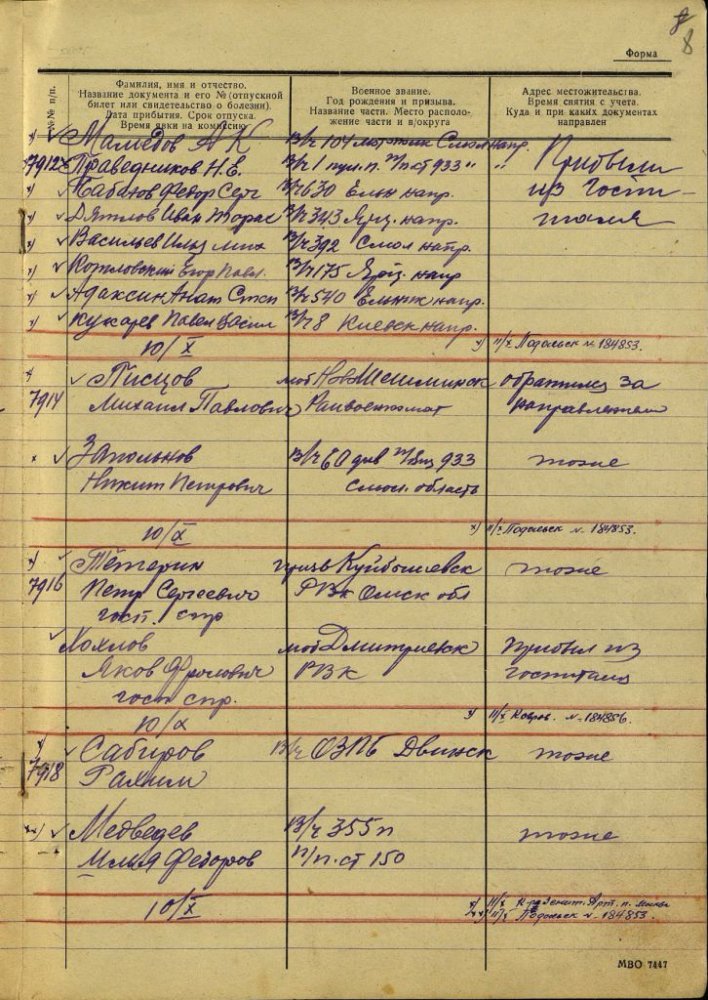 8
Форма
№№ п/п.
Фамилия, имя и отчество.
Название документа и его № (отпускной
билет или свидетельство о болезни).
Дата прибытия. Срок отпуска.
Время явки на комиссию
Военное звание.
Год рождения и призыва.
Название части. Место располо-
жение части и в/округа
Адрес местожительства.
Время снятия с учета.
Куда и при каких документах
направлен
х) ✓ Мамедов А К в/ч 104 Смол напр.
7912 Праведников Н. Е. в/ч 1 пул. п. п/п ст 933 " " Прибыли
х) ✓ Федор Серг в/ч 630 Ельн напр. из госпи-
х) ✓ Дятлов Иван в/ч 343 Ярц. напр. таля
х) ✓ Васильев Илья Мих в/ч 392 Смол напр.
х) ✓ Козловский Егор Павл. в/ч 175 Ярц напр
х) ✓ Адаксин Анат Степ в/ч 540 напр.
х) ✓ Кухарев Павел Васил в/ч 8 Киевск напр.
10/X х) 11/X Подольск №. 184853.
х ✓ Писцов моб обратился за
7914 Михаил Павлович Райвоенкомат направлением
х ✓ Запольков в/ч 60 див 933 тоже
Никит Петрович Смол. область
10/X х) 11/X Подольск №. 184853.
х) ✓ Тетерин призв Куйбышевск тоже
7916 Петр Сергеевич РВК Омск обл
госп. спр
✓ Хохлов моб Дмитриевск Прибыл из
Яков Фролович РВК госпиталя
госп спр.
10/X х) 11/X Ковров. №. 184856.
х) ✓ Сабиров в/ч ОЗПб Двинск тоже
7918 Рахим
хх) ✓ Медведев в/ч 355 п тоже
Илья Федоров п/п. ст 150
10/X х) 11/X Зенит. Арт. п. Москва
хх) 11/X Подольск №. 184853.
МВО 7447